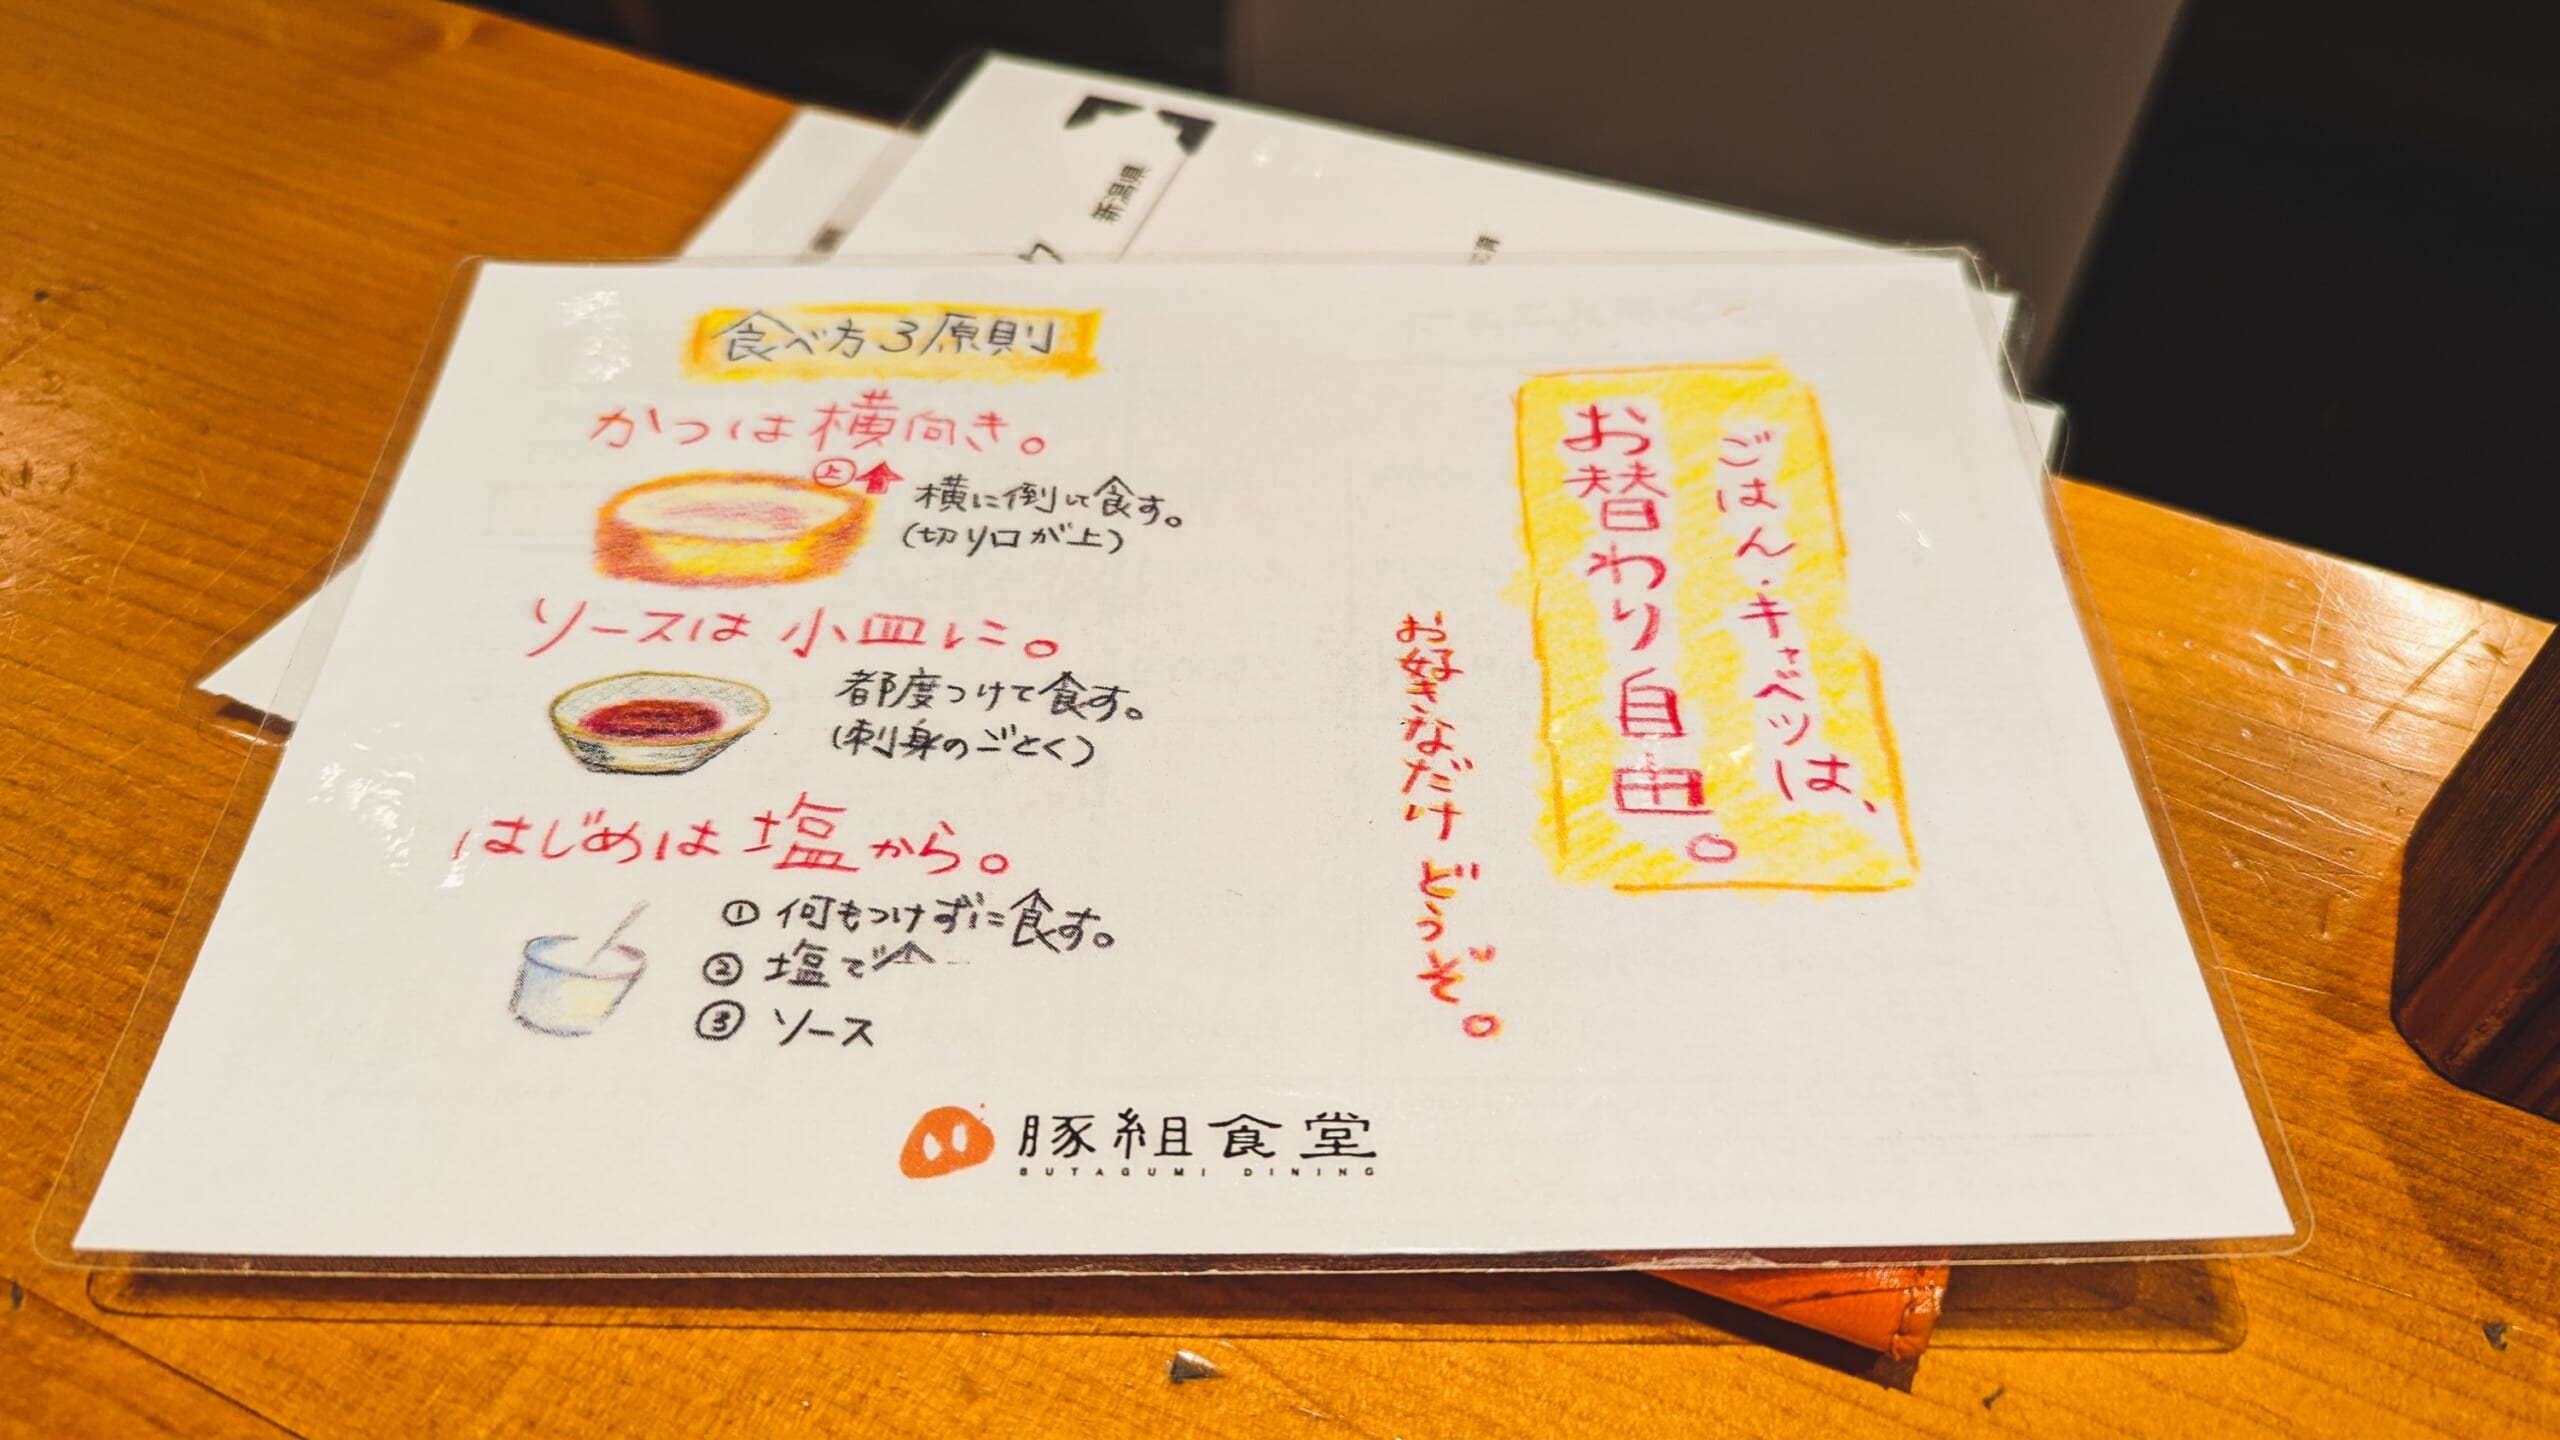 新潟県
食べ方3原則
かつは横向き。
上
横に倒して食す。
(切り口が上)
ソースは小皿に。
都度つけて食す。
(刺身のごとく)
はじめは塩から。
① 何もつけずに食す。
② 塩で
③ ソース
ごはん・キャベツは、
お替わり自由。
お好きなだけどうぞ。
豚組食堂
BUTAGUMI DINING